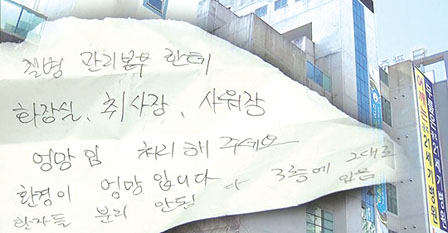 질병 관리본부 한테
화장실, 취사장, 샤워장
엉망 임 처리해 주세요
환경이 엉망 입니다
환자들 분리 안됨 다 3층에 그대로 있음